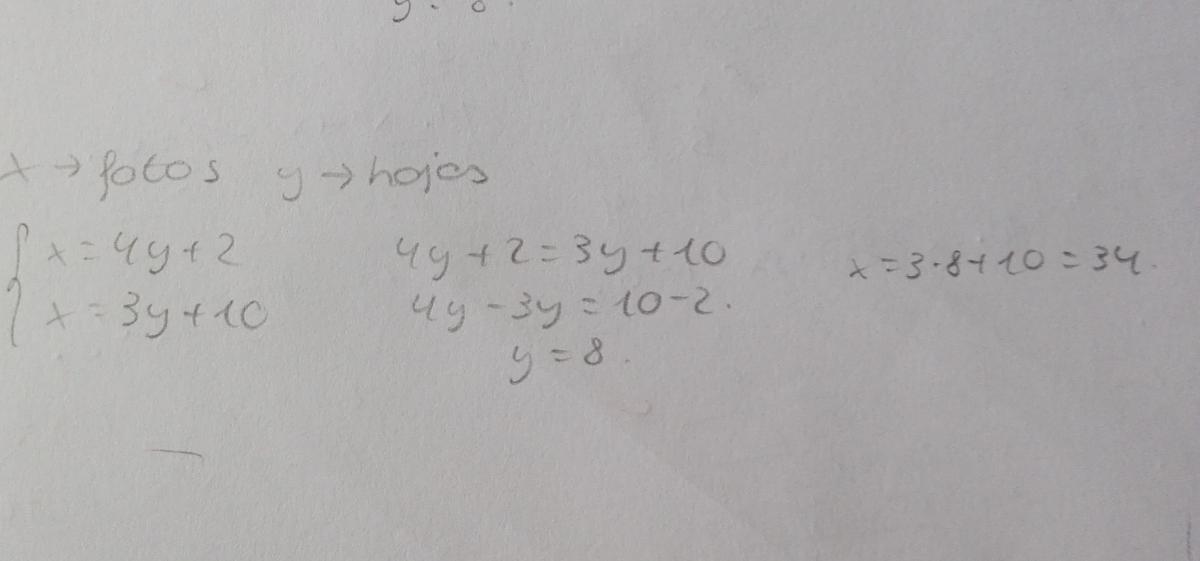 x → fotos y → hojas
x = 4y + 2
x = 3y + 10
4y + 2 = 3y + 10
4y - 3y = 10 - 2.
y = 8.
x = 3·8 + 10 = 34.